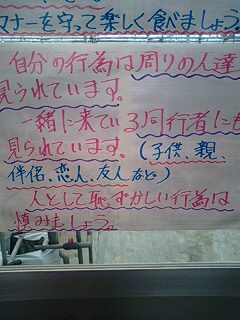 マナーを守って楽しく食べましょう。
自分の行為は周りの人達
見られています。
一緒に来ている同行者にも
見られています。(子供、親、
伴侶、恋人、友人など)
人として恥ずかしい行為は
慎みましょう。